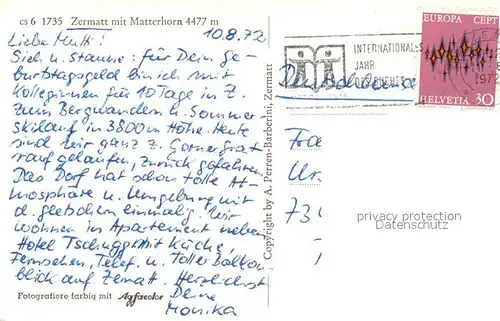 cs 6 1735 Zermatt mit Matterhorn 4477 m
10.8.72
Liebe Mutti!
Sieh u. staune: für Dein Ge-
burtstagsgeld bin ich mit
Kolleginnen für 10 Tage in Z.
zum Bergwandern u. Sommer-
skilauf in 3800 m Höhe. Heute
sind wir ganz z. Gornergrat
rauf gelaufen, zurück gefahren.
Das Dorf hat schon tolle At-
mosphäre u. Umgebung mit
d. Gletschern einmalig. Wir
wohnen in Apartement neben
Hotel Tschugge mit Küche,
Fernsehen, Telef. u. Toller Balkon
blick auf Zermatt. Herzlichst
Deine
Monika
Fotografiere farbig mit Agfacolor
Copyright by A. Perren-Barberini, Zermatt
INTERNATIONALES
JAHR
DES BUCHES
EUROPA CEPT
HELVETIA 30
Fra
Ur
73
privacy protection
Datenschutz